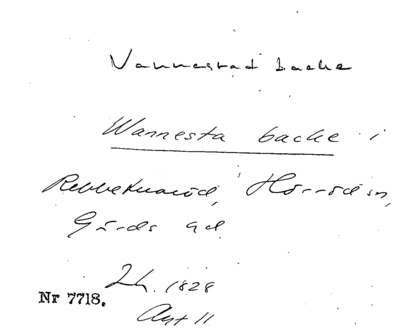 Vannestad backe
Wannesta backe i
Rebbetuaröd, Hörröd sn,
Gärds hd
Lh. 1828
Nr 7718.
Akt 11